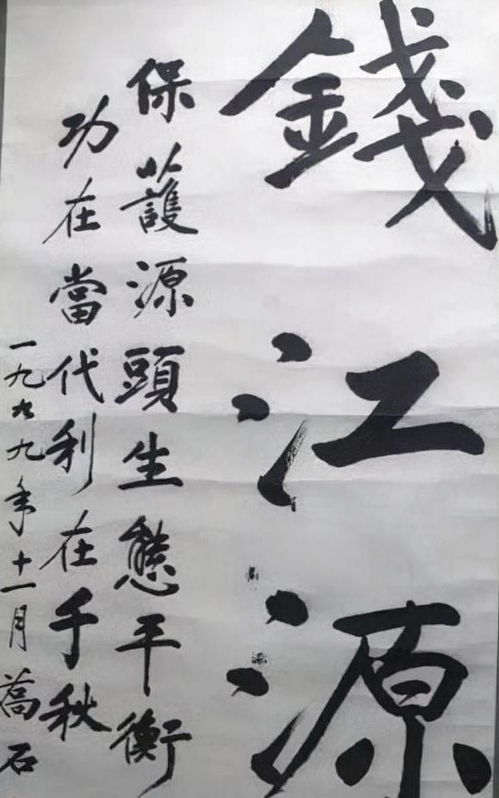 錢江源
保護源頭生態平衡
功在當代利在千秋
一九九九年十一月蒿石